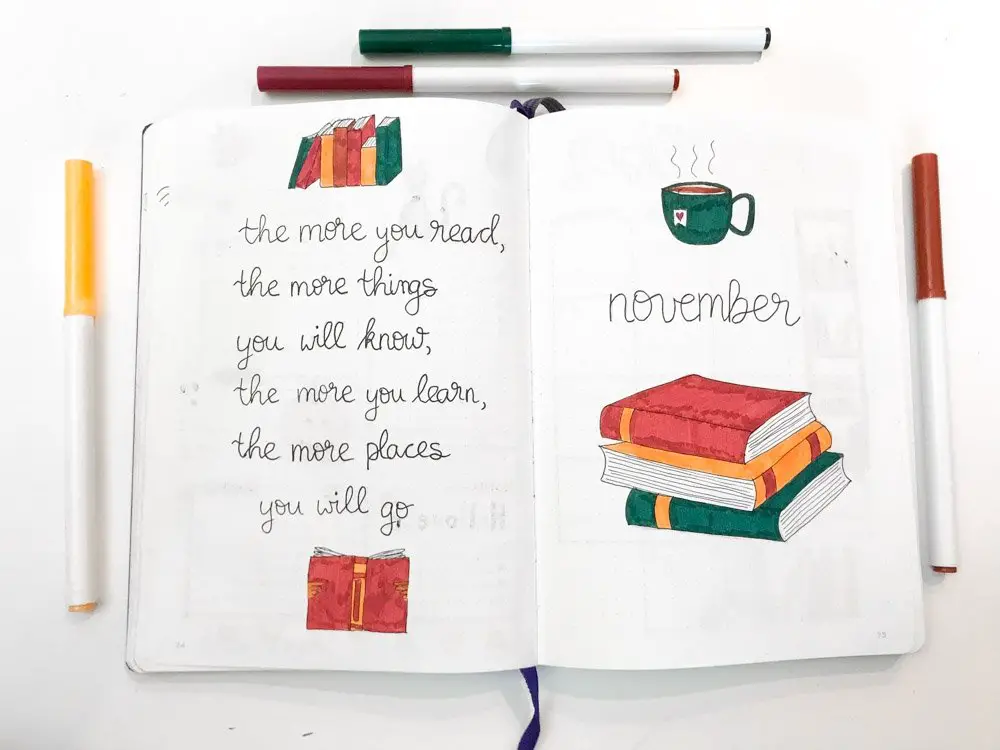 the more you read,
the more things
you will know,
the more you learn,
the more places
you will go
november